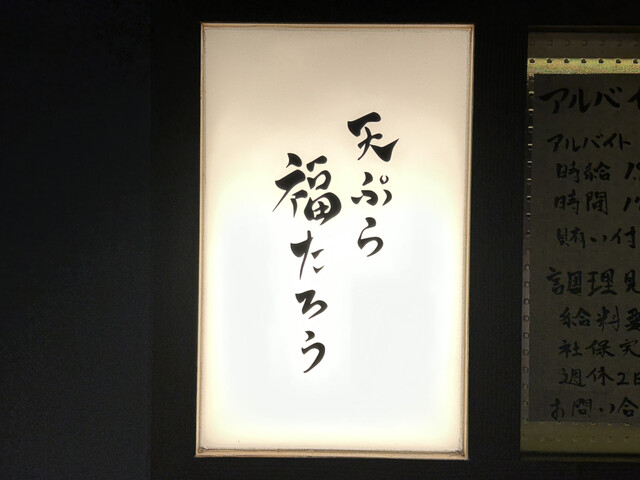 天ぷら
福たろう
アルバイ
アルバイト
時給
時間
賄い付
調理見
給料
社保完
週休2日
お問い合